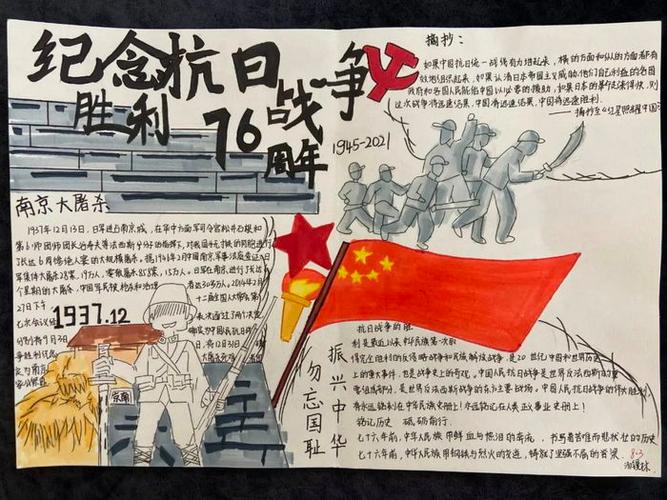 纪念抗日战争
胜利76周年
1945-2021
摘抄：
如果中国抗日统一战线有力地起来，横的方面和纵的方面都有
效地组织起来，如果认清日本帝国主义威胁他们自己利益的各国
政府和各国人民能给中国以必要的援助，如果日本的革命起来得快，则
这次战争将迅速结束，中国将迅速胜利。
——摘抄至《红星照耀中国》
南京大屠杀
1937年12月13日，日军进占南京城，在华中方面军司令官松井石根和
第6师团师团长谷寿夫等法西斯分子的指挥下，对我国手无寸铁的同胞进行
了长达6周惨绝人寰的大规模屠杀。
日军集体大屠杀28案，19万人，零散屠杀858案，15万人。日军在南京进行了长达
个星期的大屠杀，中国军民被枪杀和活埋
者达30多万人。2014年2月
27日下午
十二届全国人大常委
七次会议
表决通过了两个决定
分别将9月3日
1937.12
南京
勿忘国耻
振兴中华
抗日战争的胜
利是最近以来中华民族第一次的
得完全胜利的反侵略战争和民族解放战争，是20世纪中国和世界历史
上的重大事件，也是战争史上的奇观。中国人民抗日战争是世界反法西斯战争的重
要组成部分，是世界反法西斯战争的东方主要战场。中国人民抗日战争的伟大胜利，
将永远铭刻在中华民族史册上！永远铭记在人类正义事业史册上！
铭记历史 砥砺前行
七十六年前，中华人民族用鲜血与热泪的奔流，书写着苦难而悲伏壮的历史
七十六年前，中华人民族用钢铁与烈火的交迸，铸就了坚强不屈的首梁。
8.3